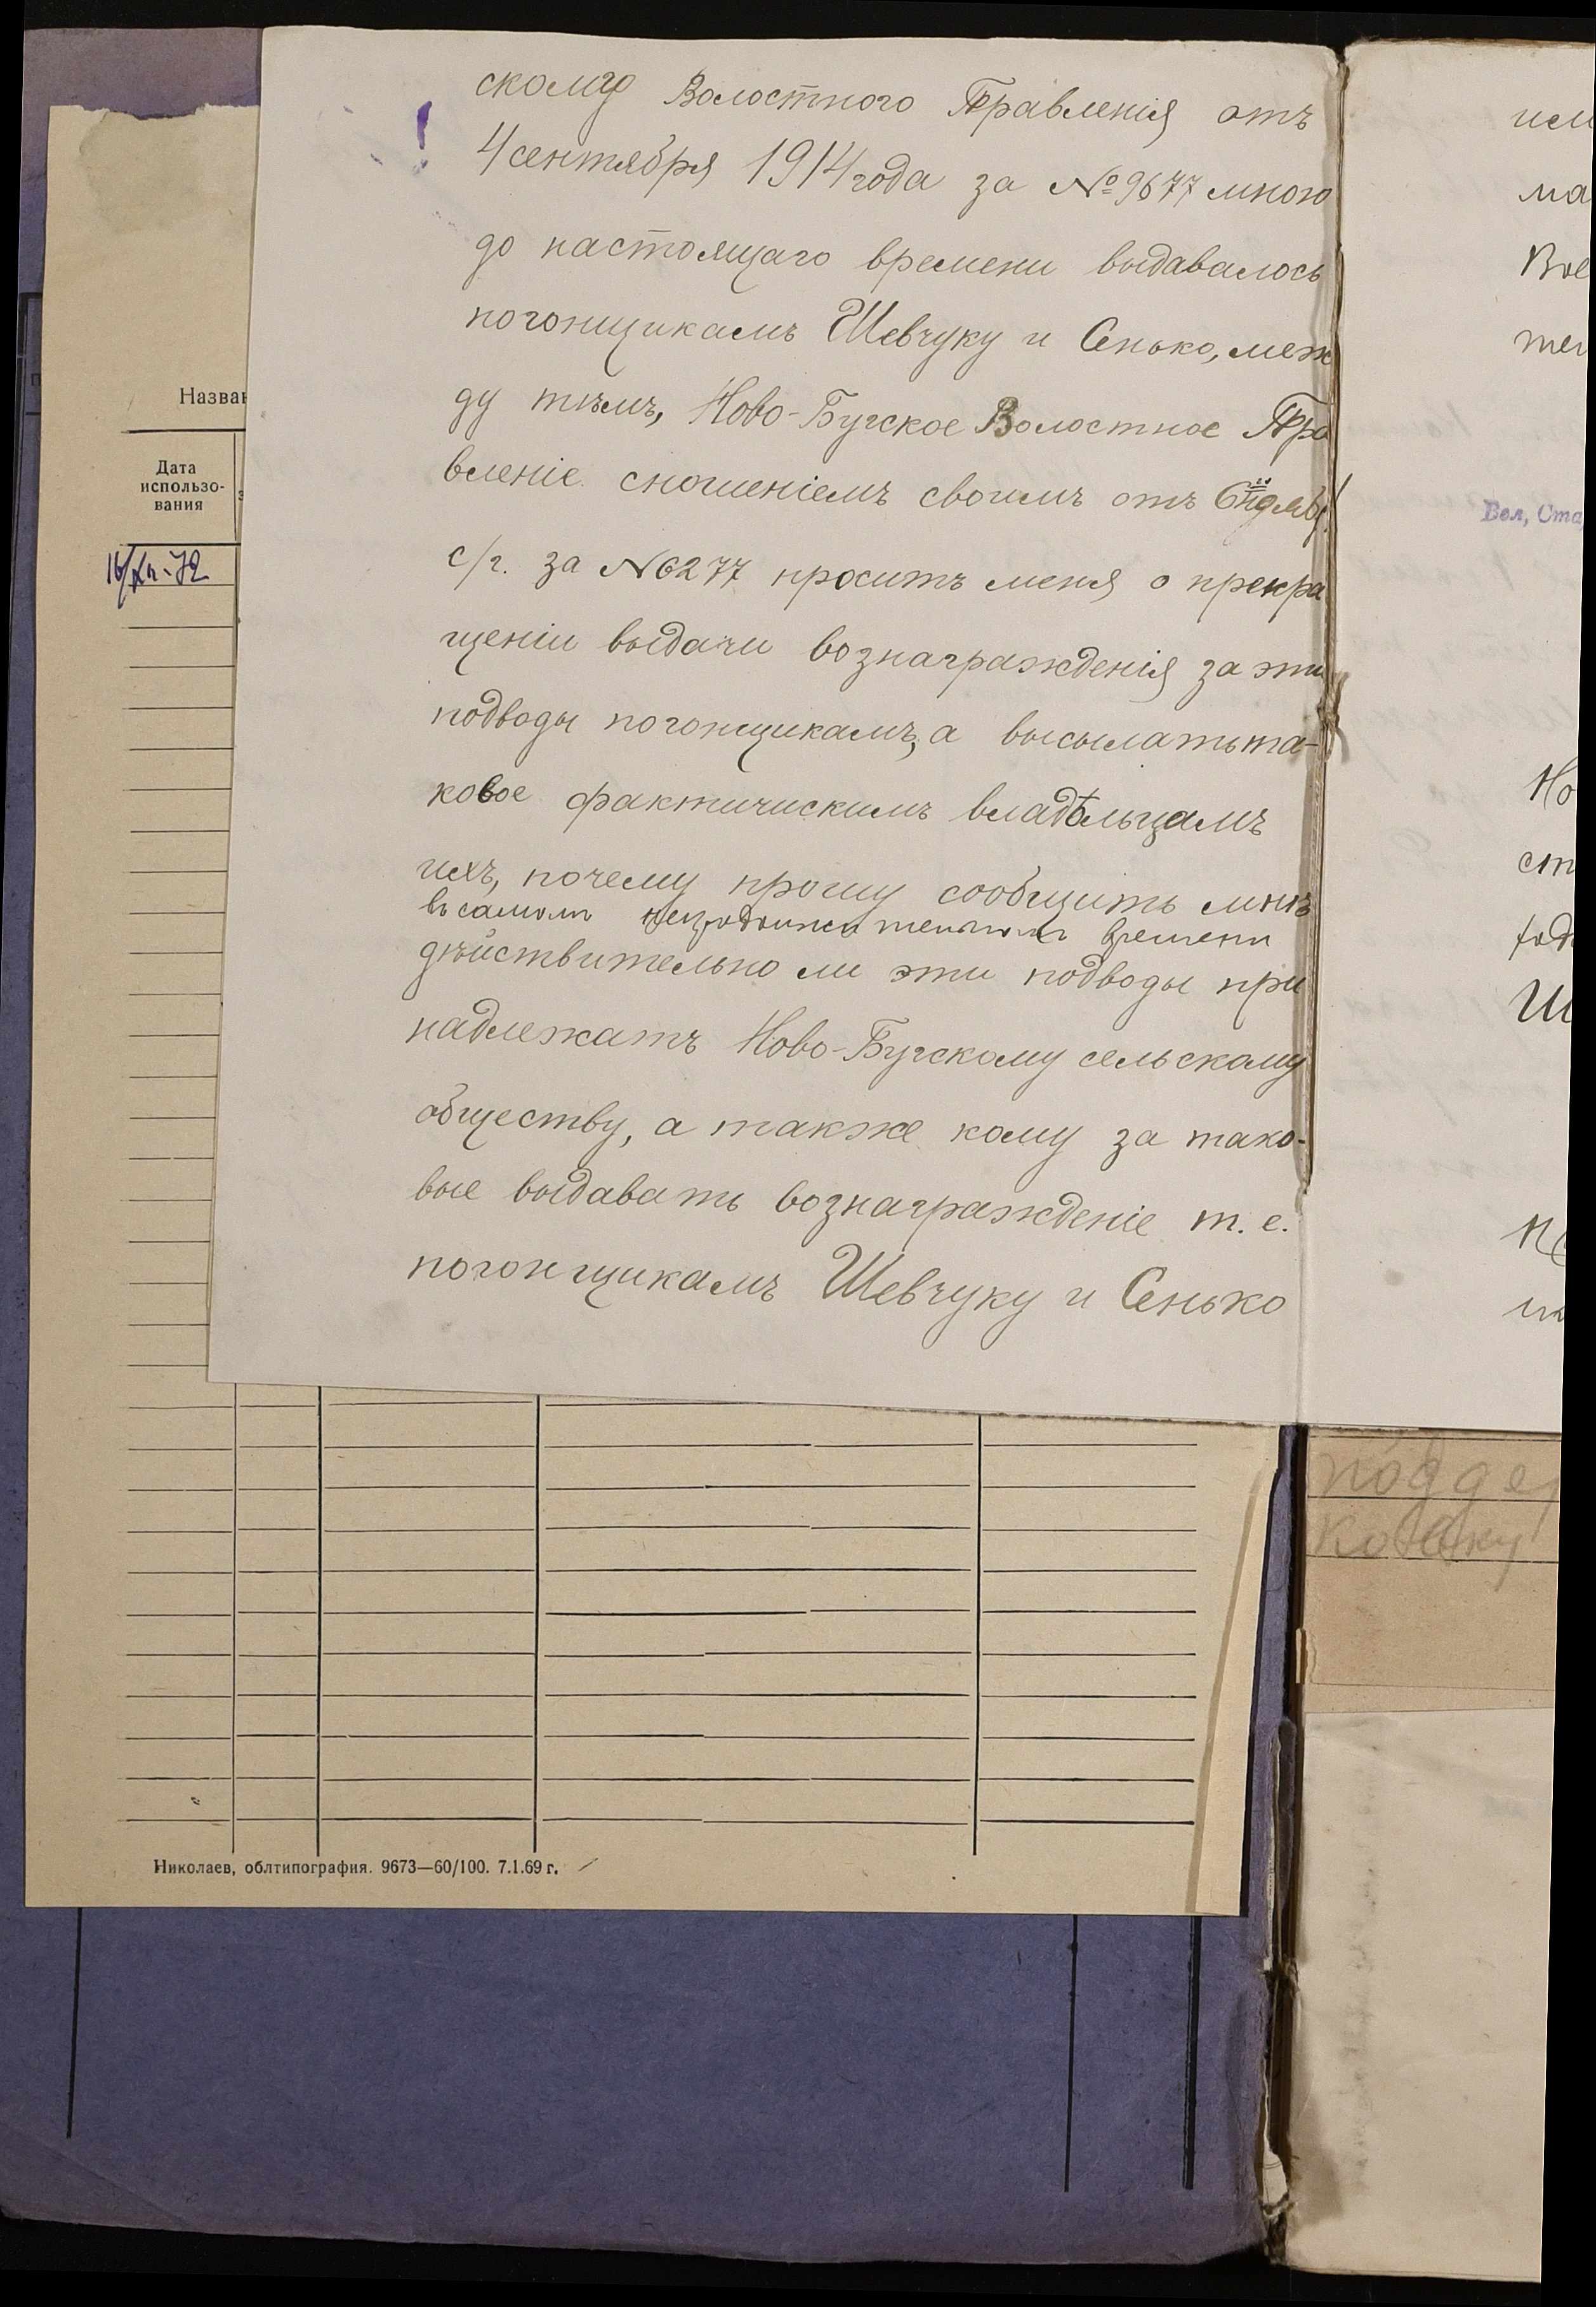 скому Волостного Правленія отъ
4 сентября 1914 года за № 9677 мною
до настоящаго времени выдавалось
погонщикамъ Шевчуку и Сенько, меж
ду тѣмъ, Ново-Бугское Волостное Пра
вленіе сношеніемъ своимъ отъ
с/г. за N 6277 проситъ меня о прекра
щеніи выдачи вознагражденія за эти
подводы погонщикамъ, а высылать та-
ковое фактичискимъ владѣльцамъ
ихъ, почему прошу сообщить мнѣ
въ самомъ непродолжительномъ времени
дѣйствительно ли эти подводы при
надлежатъ Ново-Бугскому сельскому
обществу, а также кому за тако-
вые выдавать вознагражденіе т. е.
погонщикамъ Шевчуку и Сенько
Назван
Дата
использо-
вания
16/XII-72
Николаев, облтипография. 9673—60/100. 7.1.69 г.
ма
Вол, Ста
Но
ст